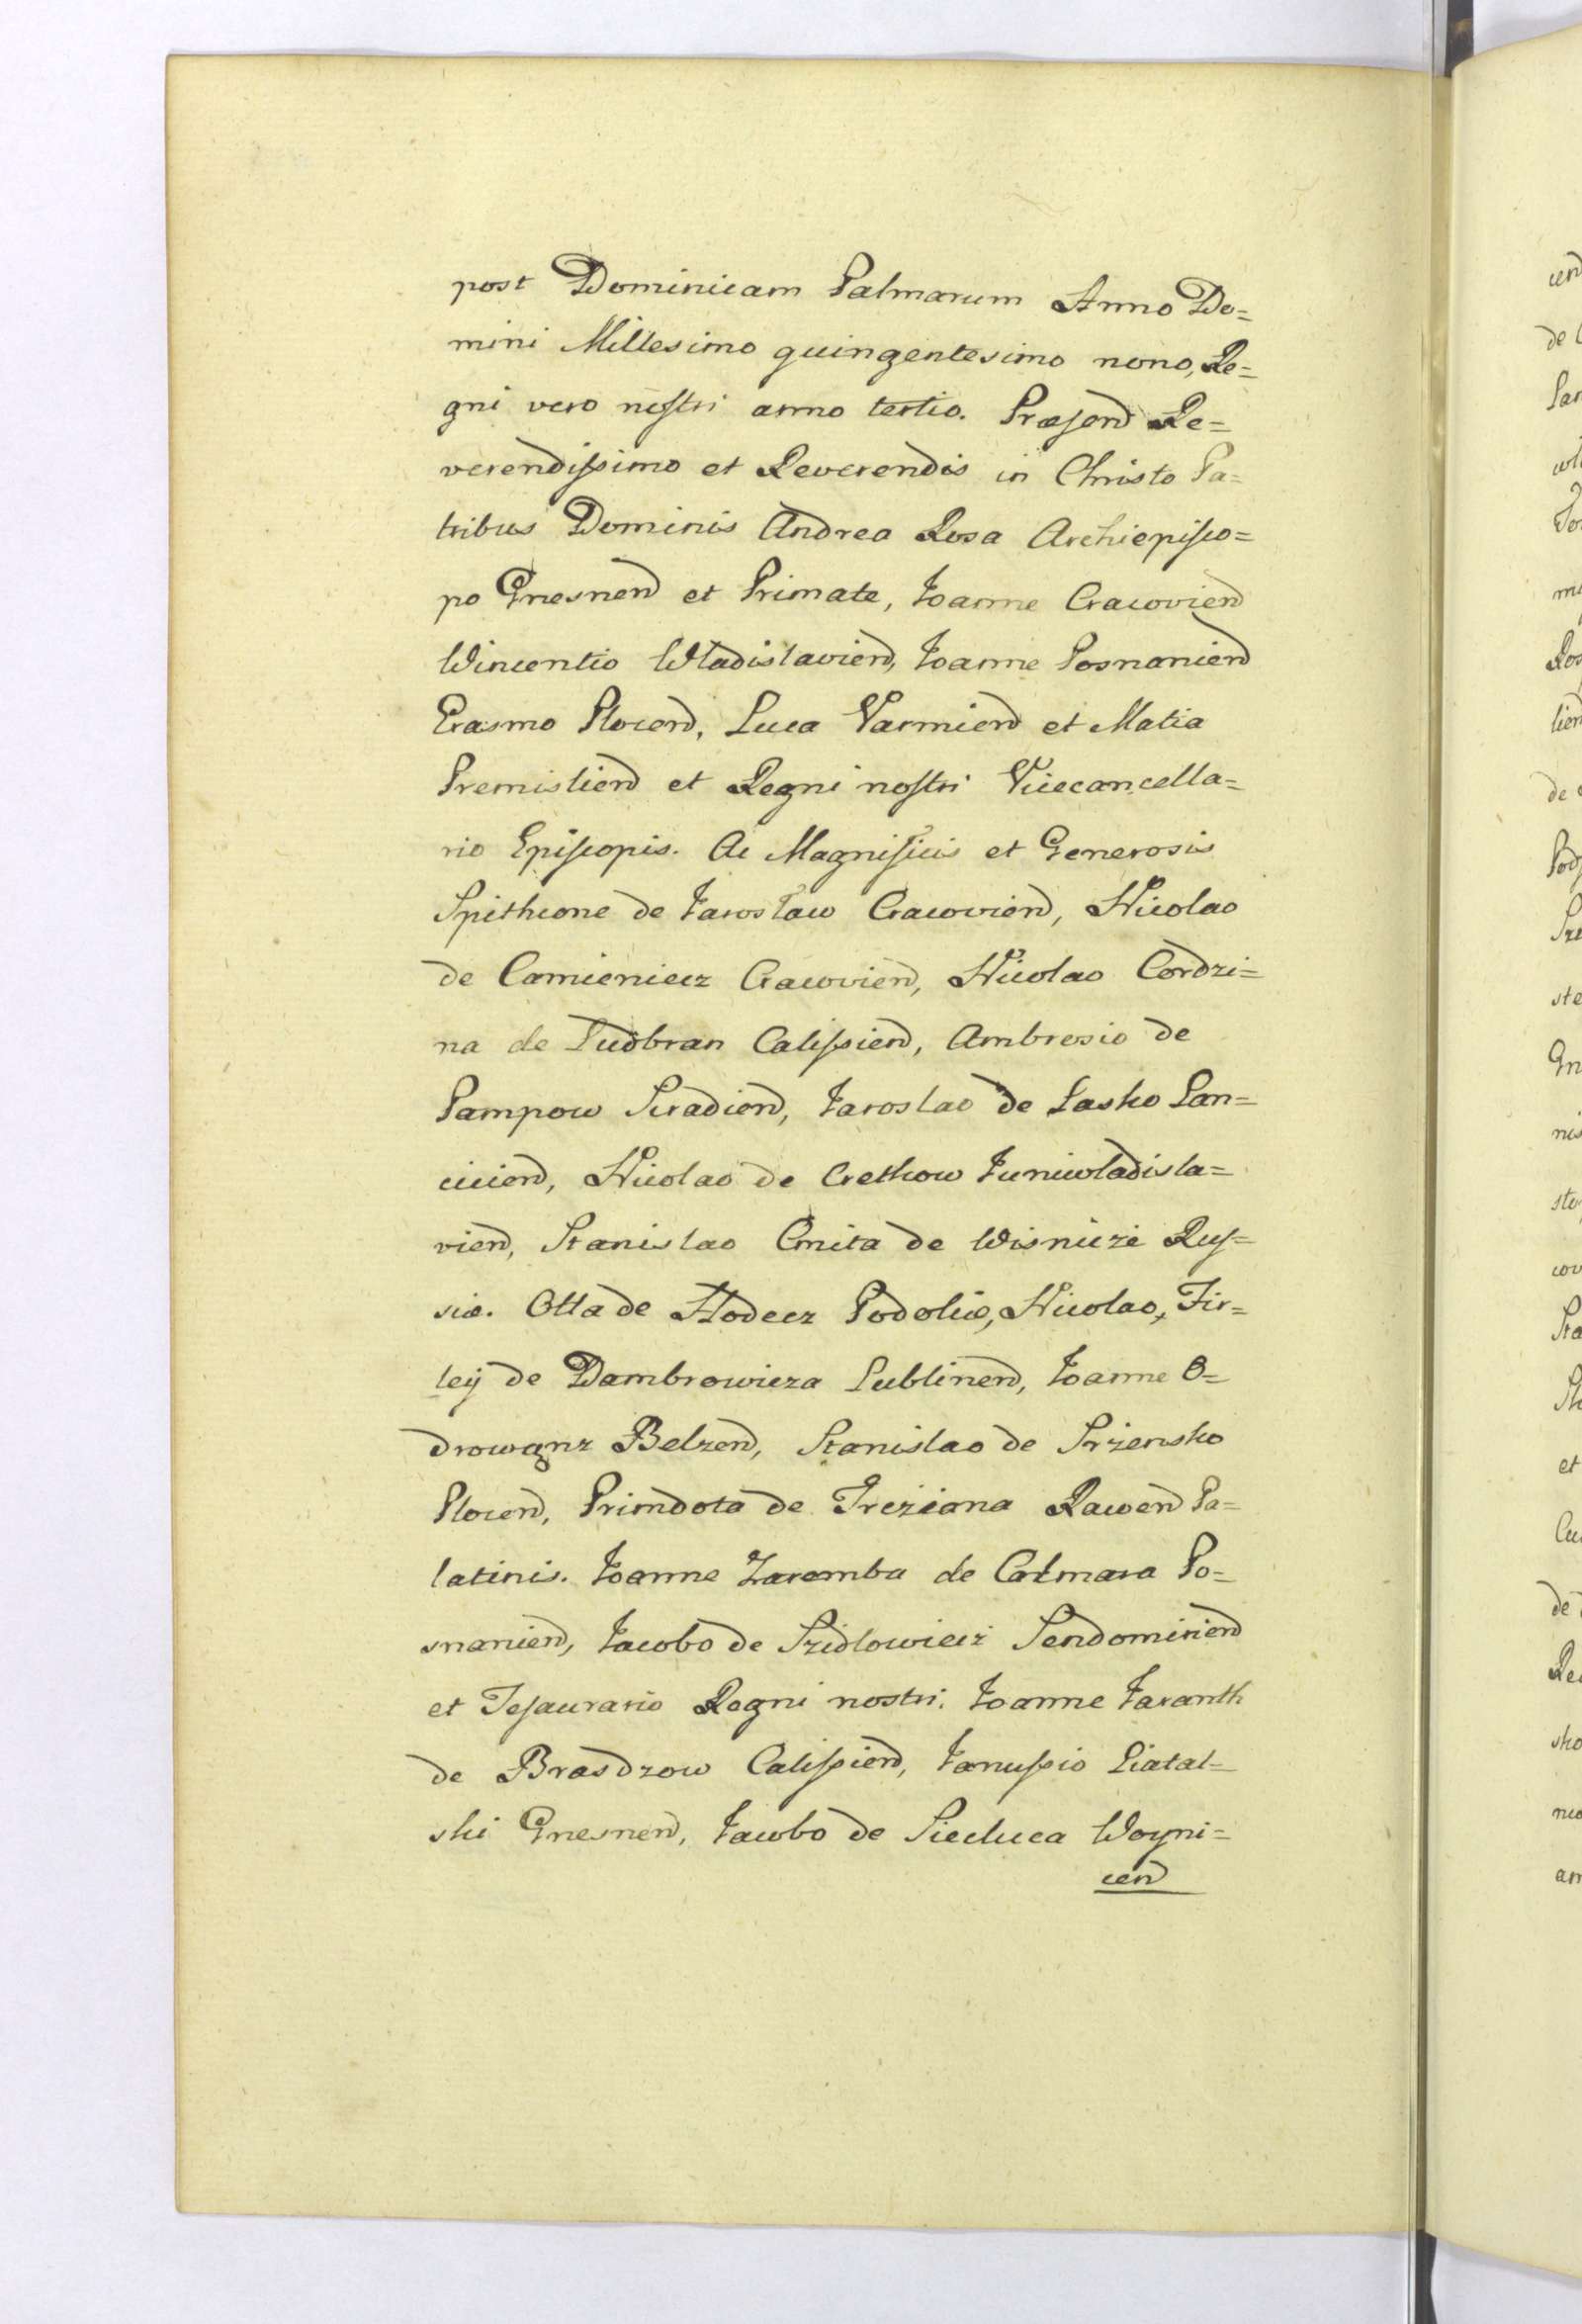 post Dominicam Palmarum Anno Do=
mini Millesimo quingentesimo nono, Re=
gni vero nostri anno tertio. Præsend Re=
verendissimo et Reverendis in Christo Pa=
tribus Dominis Andrea Rosa Archiepisco=
po Gnesnend et Primate, Ioanne Cracoviend
Wincentio Wladislaviend, Ioanne Posnaniend
Erasmo Plocend, Luca Varmiend et Matia
Premisliend et Regni nostri Vicecancella=
rio Episcopis. Ac Magnificis et Generosis
Spithcone de Iarosław Cracoviend, Nicolao
de Camieniecz Cracoviend, Nicolao Cordzi=
na de Ludbran Calissiend, Ambrosio de
Pampow Siradiend, Iaroslao de Lasko Lan=
ciciend, Nicolao de Crethcow Iuniwladisla=
viend, Stanislao Cmita de Wisnicze Rus=
siæ. Otta de Hodecz Podoliæ, Nicolao, Fir=
leÿ de Dambrowicza Lublinend, Ioanne O=
drowąnz Belzend, Stanislao de Srzensko
Plocend, Primdota de Treziana Rawend Pa=
latinis. Ioanne Zaremba de Calmara Po=
snaniend, Iacobo de Szidlowiecz Sendomiriend
et Tesaurario Regni nostri. Ioanne Iaranth
de Brasdzow Calissiend, Ianussio Liatal=
ski Gnesnend, Iacobo de Siecluca Woyni=
cend
cend
de
ste
et
de
am